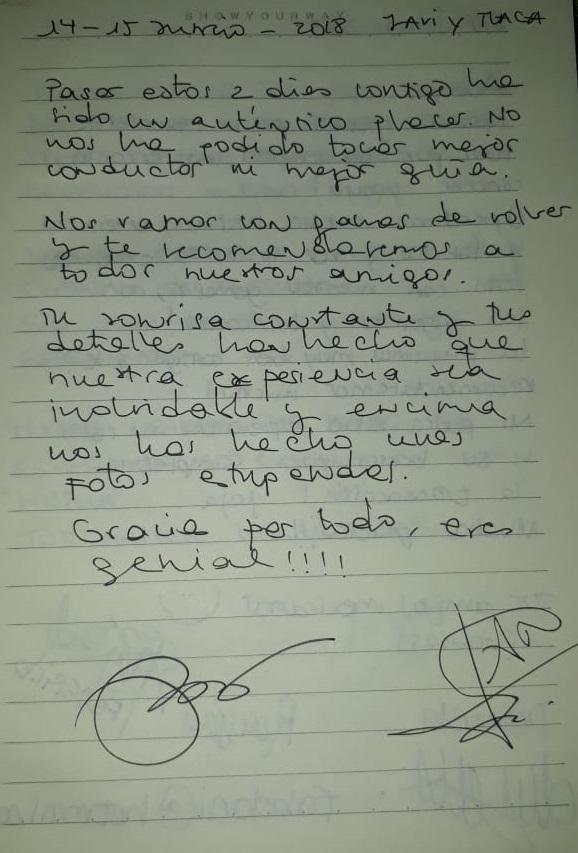 SHOWYOURWAY
14-15 Junio - 2018 JAVI Y
Pasar estos 2 dias contigo ha
sido un auténtico placer. No
nos ha podido tocar mejor
conductor ni mejor guía.
Nos vamos con ganas de volver
y te recomendaremos a
todos nuestros amigos.
Tu sonrisa constante y tus
detalles han hecho que
nuestra experiencia sea
inolvidable y encima
nos has hecho unas
Fotos estupendas.
Gracias por todo, eres
genial!!!!